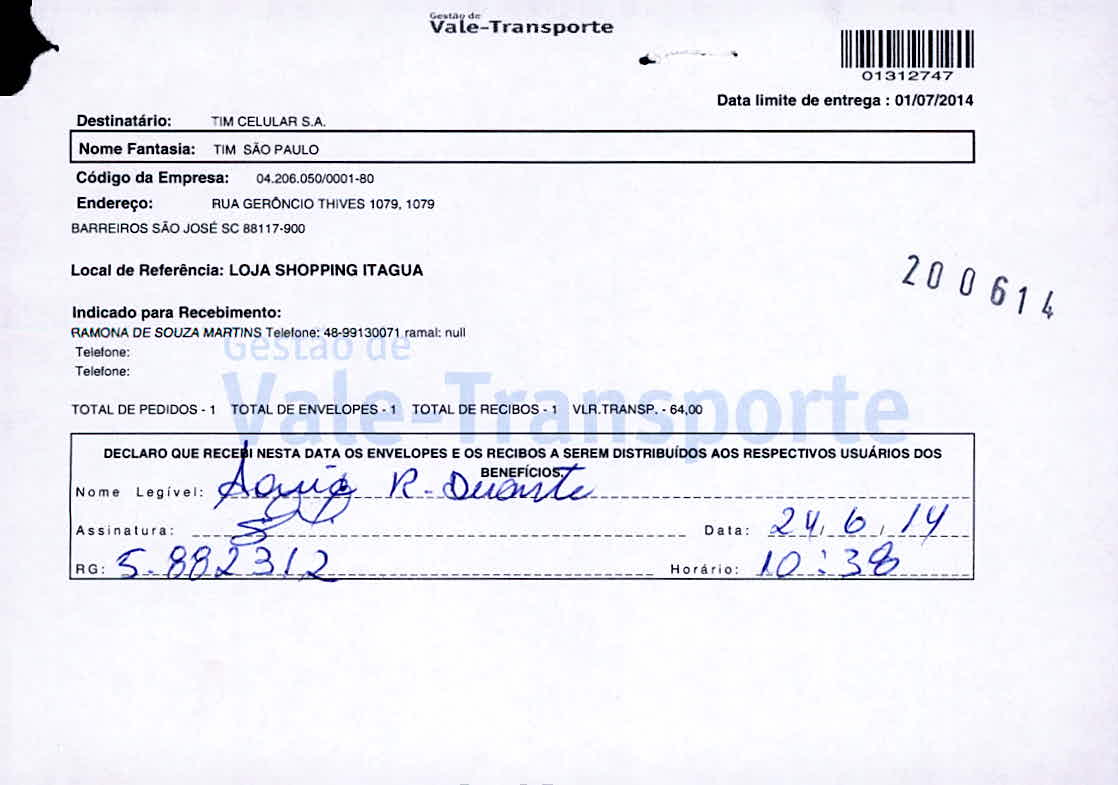 Gestão de
Vale-Transporte
01312747
Data limite de entrega : 01/07/2014
Destinatário: TIM CELULAR S.A.
Nome Fantasia: TIM SÃO PAULO
Código da Empresa: 04.206.050/0001-80
Endereço: RUA GERÔNCIO THIVES 1079, 1079
BARREIROS SÃO JOSÉ SC 88117-900
Local de Referência: LOJA SHOPPING ITAGUA
200614
Indicado para Recebimento:
RAMONA DE SOUZA MARTINS Telefone: 48-99130071 ramal: null
Telefone:
Telefone:
Gestão de
Vale-Transporte
TOTAL DE PEDIDOS - 1 TOTAL DE ENVELOPES - 1 TOTAL DE RECIBOS - 1 VLR.TRANSP. - 64,00
DECLARO QUE RECEBI NESTA DATA OS ENVELOPES E OS RECIBOS A SEREM DISTRIBUÍDOS AOS RESPECTIVOS USUÁRIOS DOS
BENEFÍCIOS.
Nome Legível: R. Duarte
Assinatura: Data: 24/6/14
RG: 5.882312 Horário: 10:38